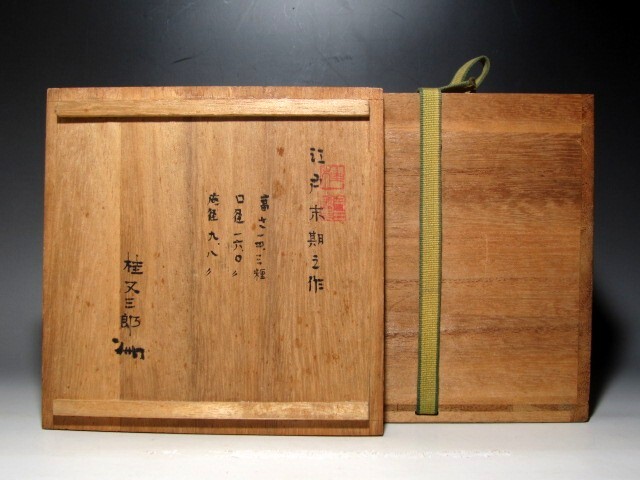 江戸末期之作
高さ一四.三糎
口径一六.〇〃
底径九.八〃
桂又三郎